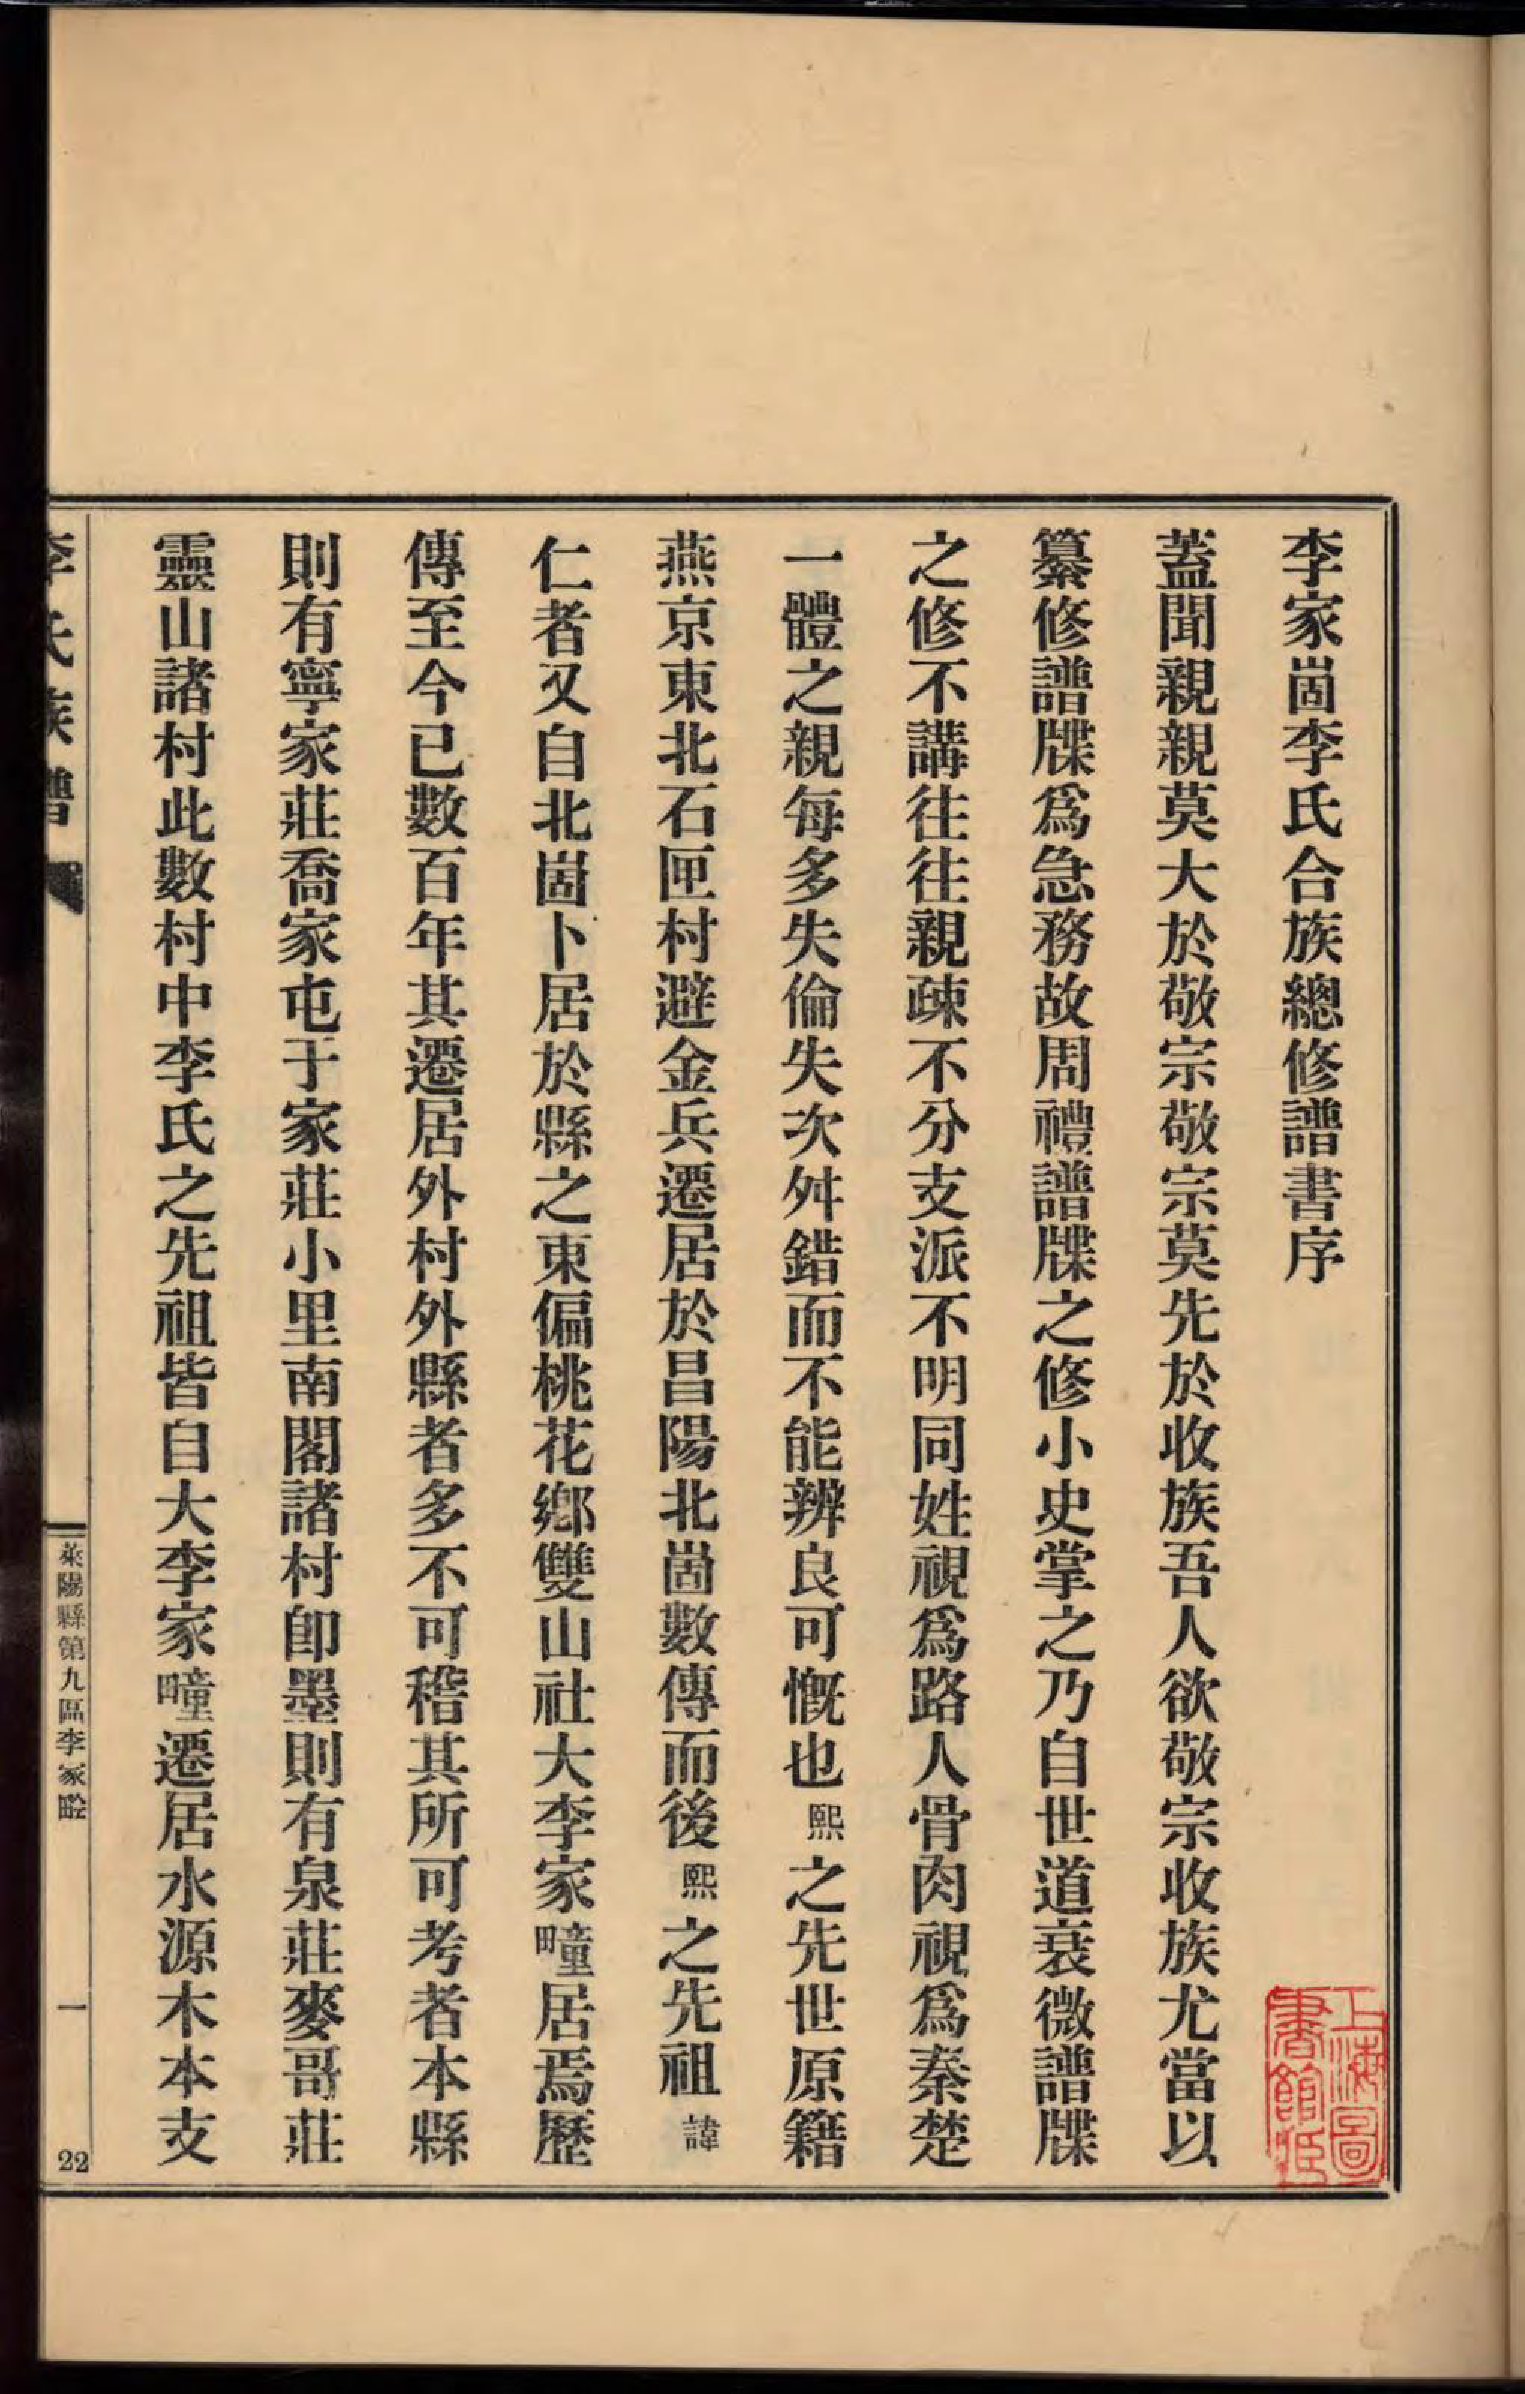 李家崮李氏合族總修譜書序
蓋聞親親莫大於敬宗敬宗莫先於收族吾人欲敬宗收族尤當以
纂修譜牒爲急務故周禮譜牒之修小史掌之乃自世道衰微譜牒
之修不講往往親疎不分支派不明同姓視爲路人骨肉視爲秦楚
一體之親每多失倫失次舛錯而不能辨良可慨也熙之先世原籍
燕京東北石匣村避金兵遷居於昌陽北崮數傳而後熙之先祖諱
仁者又自北崮卜居於縣之東偏桃花鄉雙山社大李家疃居焉歷
傳至今已數百年其遷居外村外縣者多不可稽其所可考者本縣
則有寧家莊喬家屯于家莊小里南閣諸村卽墨則有泉莊麥哥莊
靈山諸村此數村中李氏之先祖皆自大李家疃遷居水源木本支
李氏族譜
萊陽縣第九區李家
一
22
上海圖書館藏